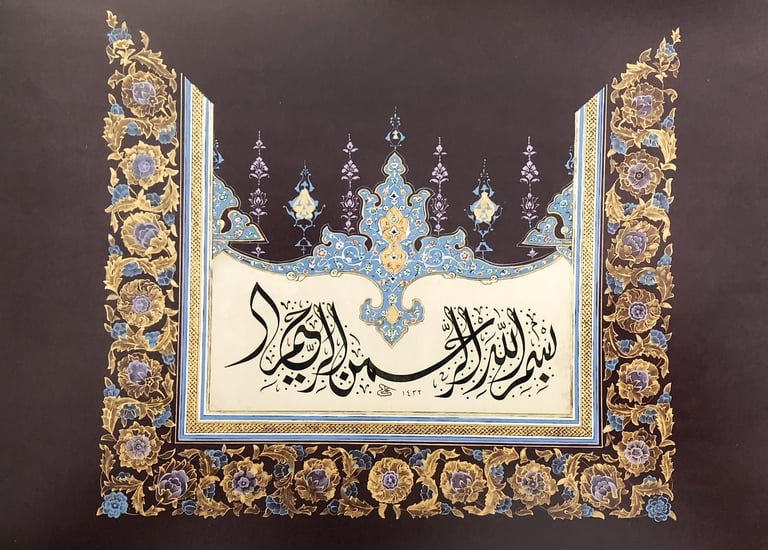 بسم الله الرحمن الرحيم
١٤٣٢